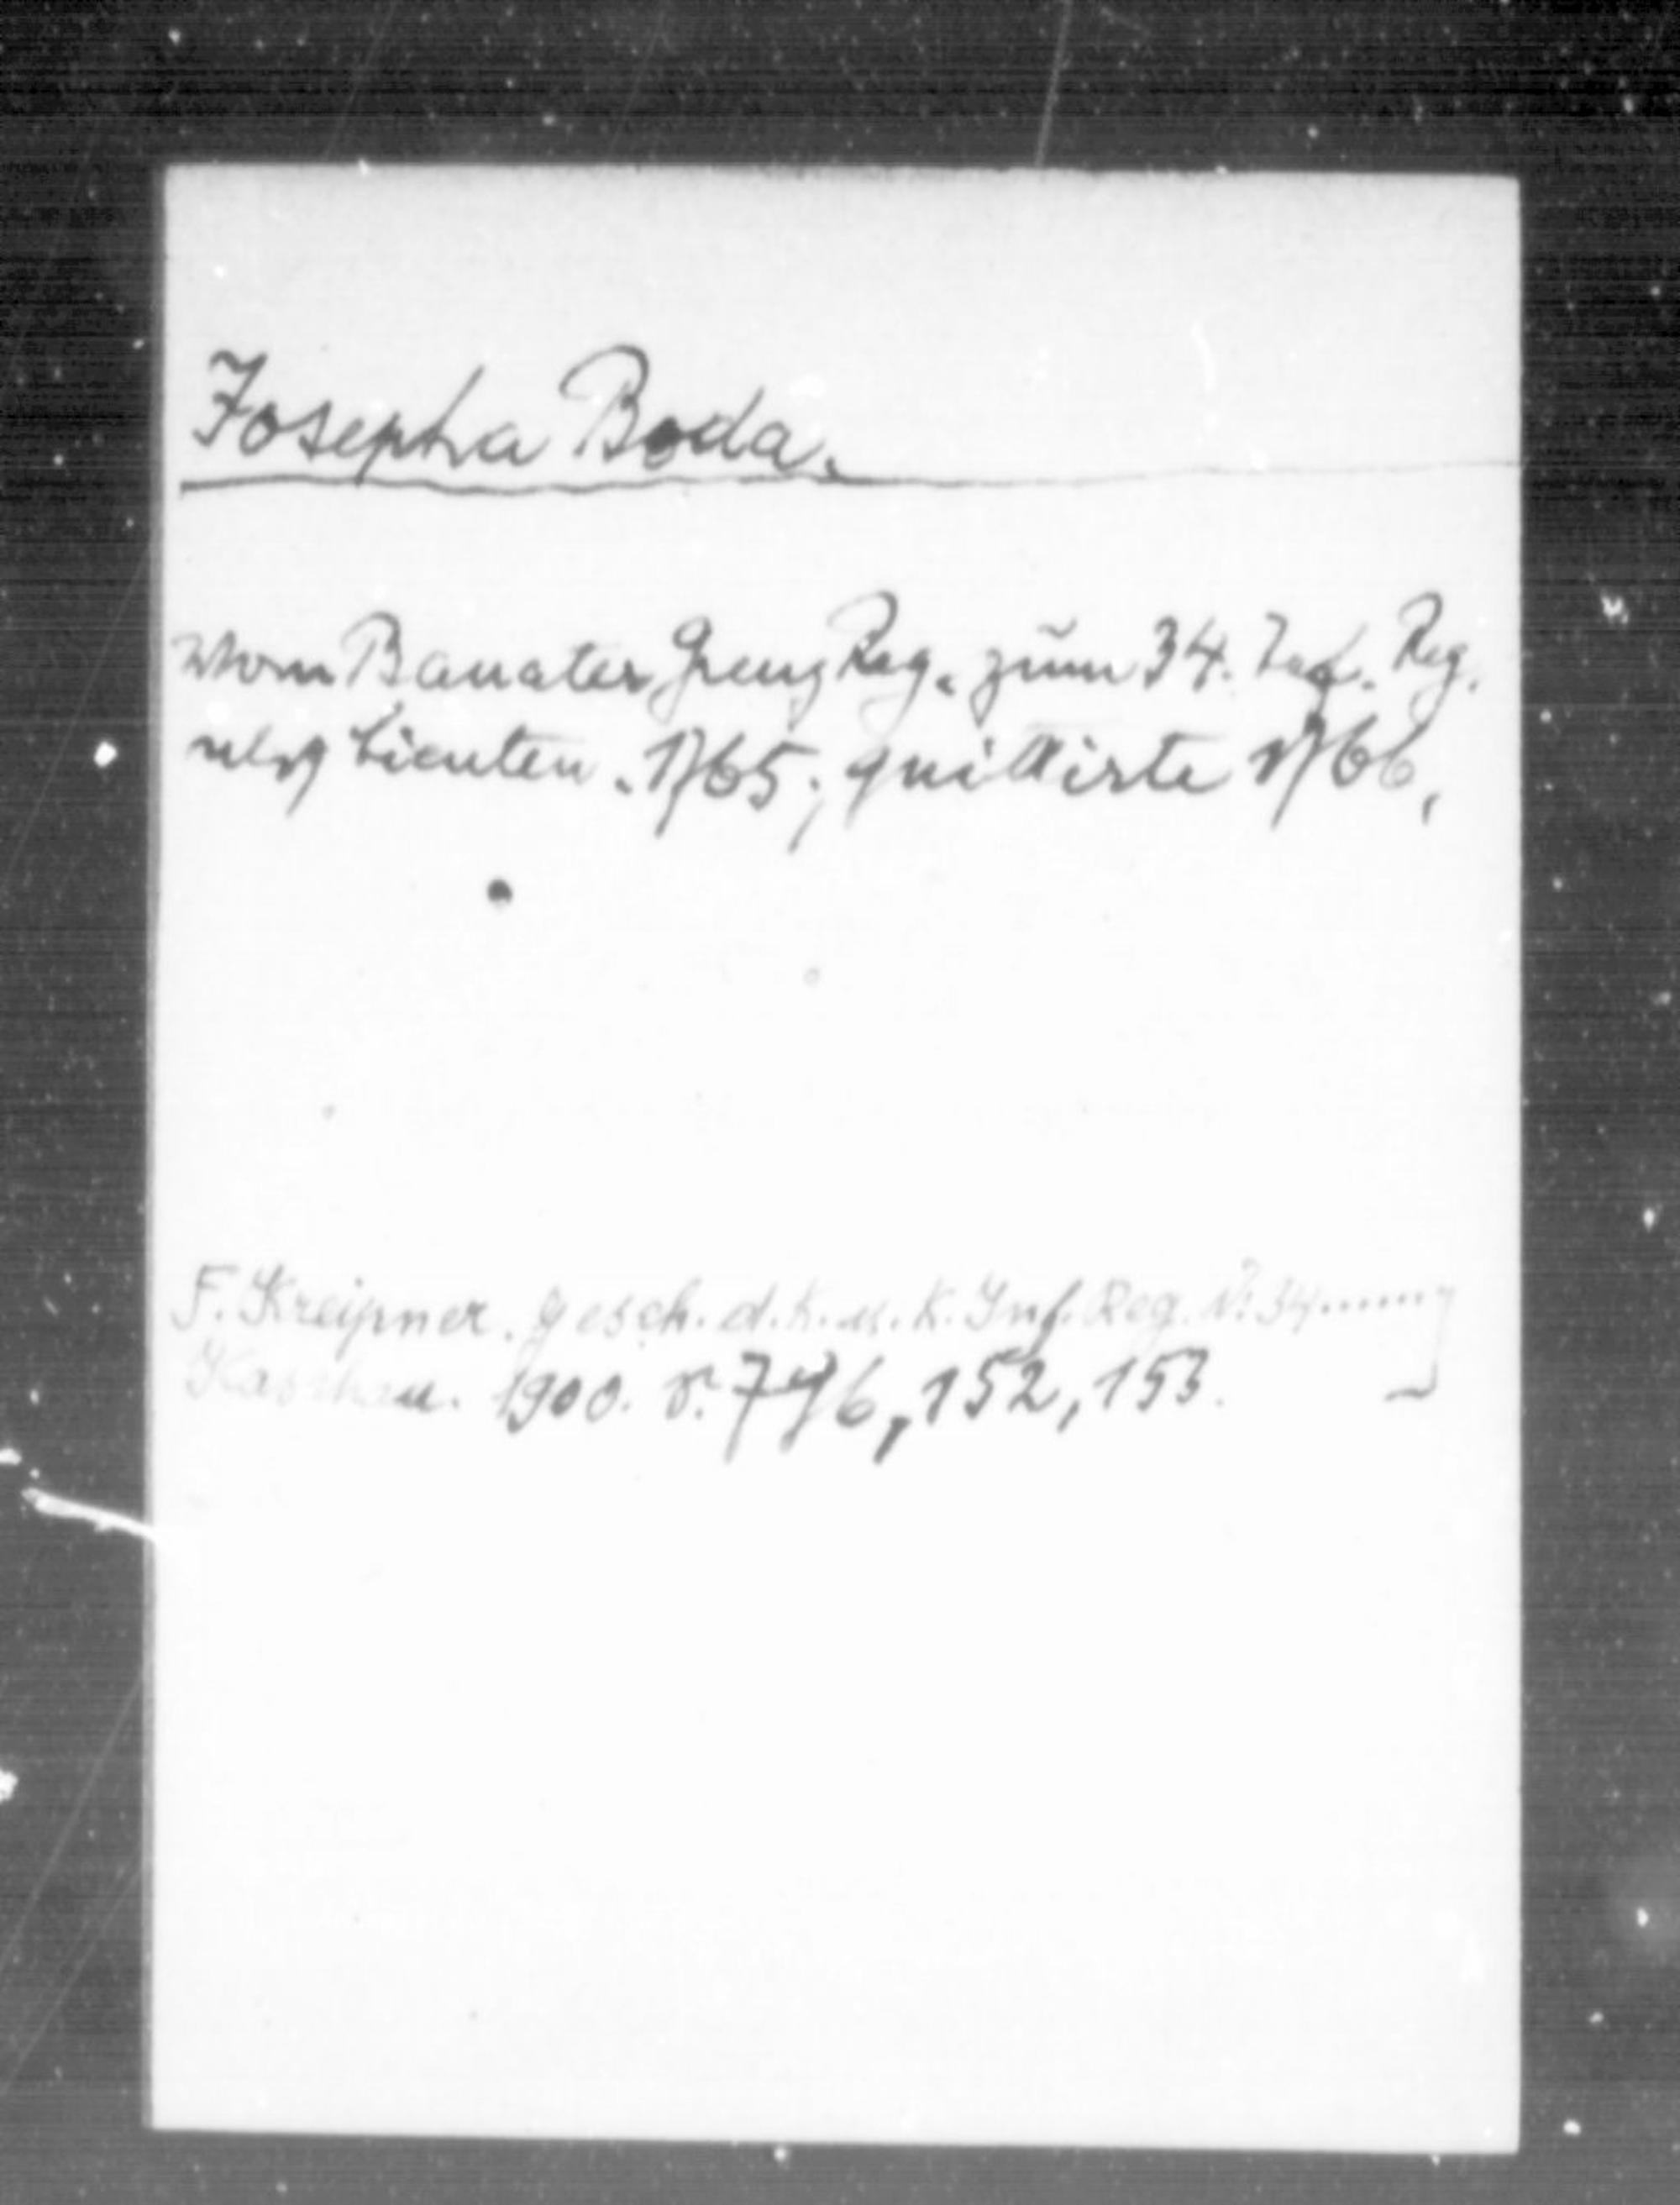 Josepha Boda.
vom Banater Grenz Reg. zum 34. Inf. Reg.
als Lieuten. 1765; quittirte 1766,
F. Kreipner. Gesch. d. K. u. K. Inf. Reg. N: 34.....
Kaschau. 1900. S. 776, 152, 153.